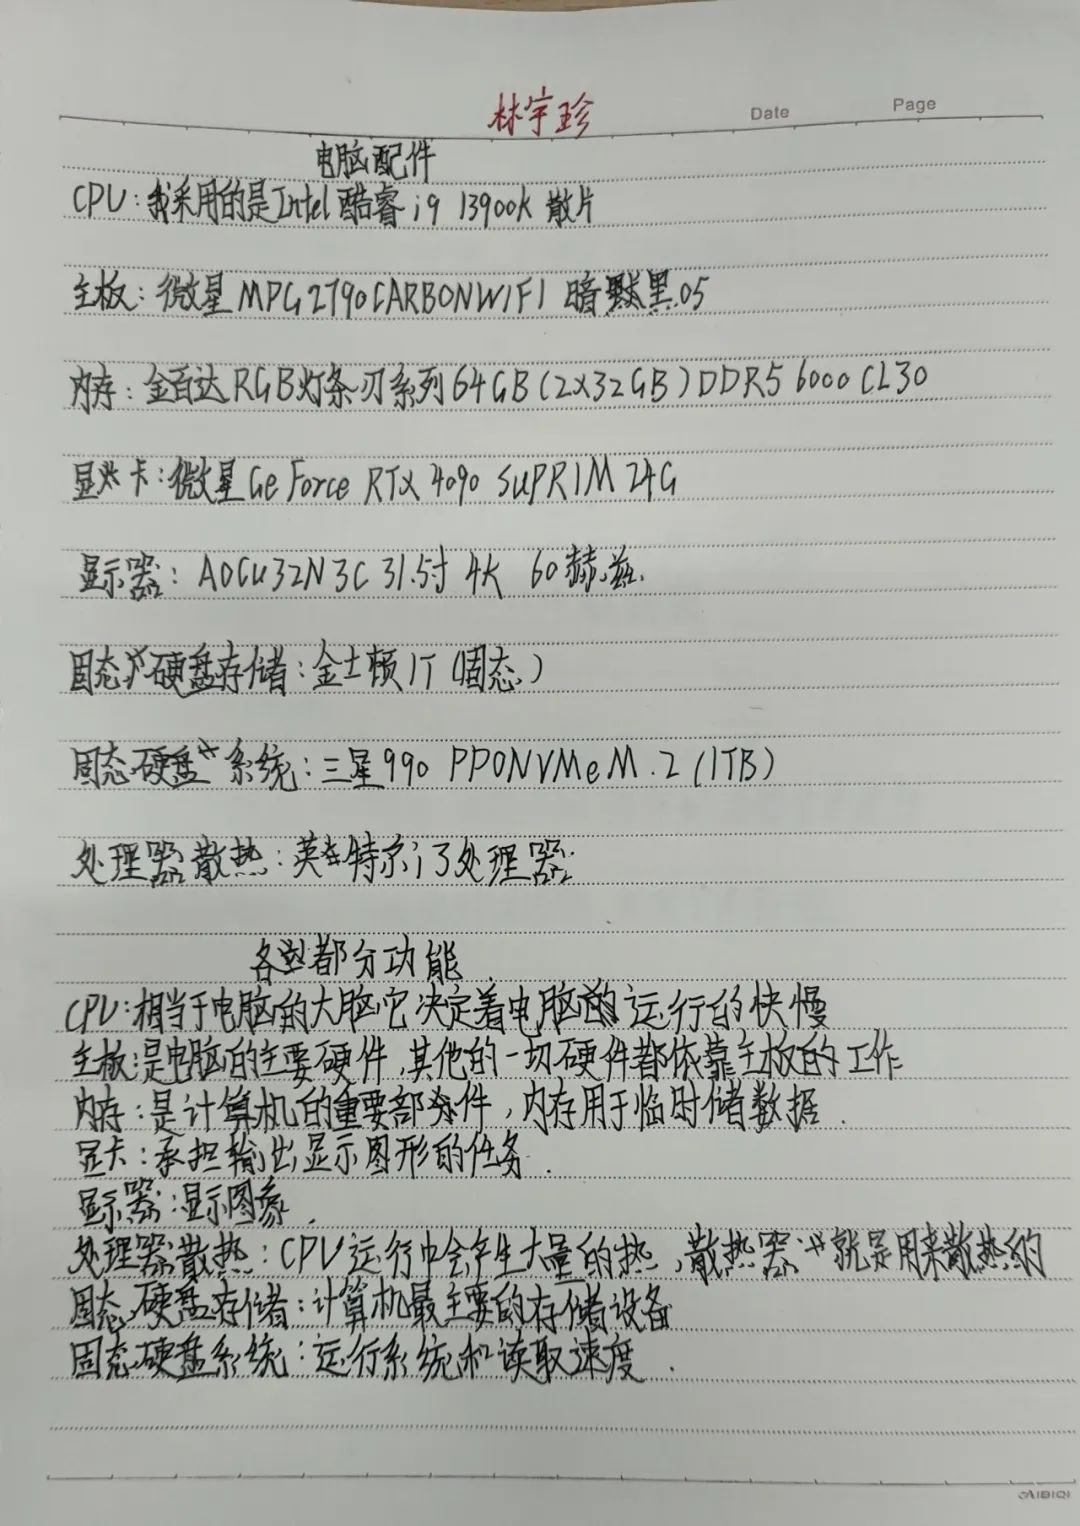 林宇珍
Date
Page
电脑配件
CPU:我采用的是Intel 酷睿 i9 13900K 散片
主板:微星MPG2790CARBONWIFI 暗黑.05
内存:金百达RGB灯条刃系列64GB(2X32GB)DDR5 6000 CL30
显卡:微星GeForce RTX 4090 SUPRIM 24G
显示器:AOCU32N3C 31.5寸 4K 60赫兹.
固态硬盘存储:金士顿1T(固态)
固态硬盘系统:三星990 PPONVMeM.2(1TB)
处理器散热:英特尔i3处理器
各部分功能
CPU:相当于电脑的大脑它决定着电脑的运行的快慢
主板:是电脑的主要硬件,其他的一切硬件都依靠主板的工作
内存:是计算机的重要部件,内存用于临时储数据.
显卡:承担输出显示图形的任务.
显示器:显示图象.
处理器散热:CPU运行中会产生大量的热,散热器就是用来散热的
固态硬盘存储:计算机最主要的存储设备
固态硬盘系统:运行系统和读取速度.
AIBIQI